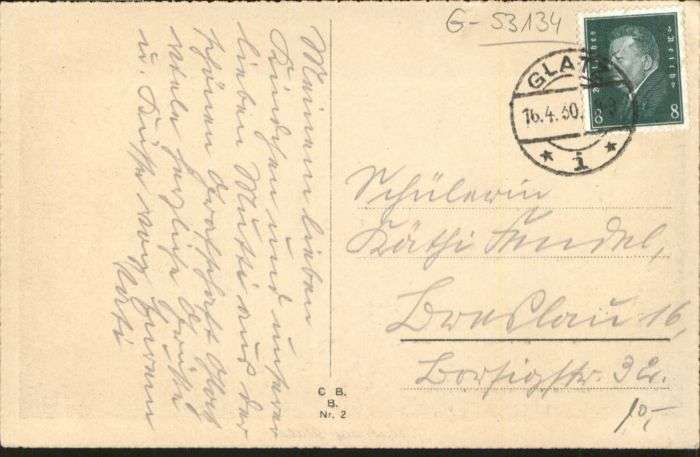 G-53134
GLATZ
16.4.30.
* i *
8 8
Meinem lieben
Kindchen und unserer
lieben Mutti aus der
schönen Grafschaft Glatz
viele herzliche Grüße
u. Küsse von Eurem
Vati
Schülerin
Käthi
Breslau 16,
Borsigstr. 32.
10,-
C B.
B.
Nr. 2